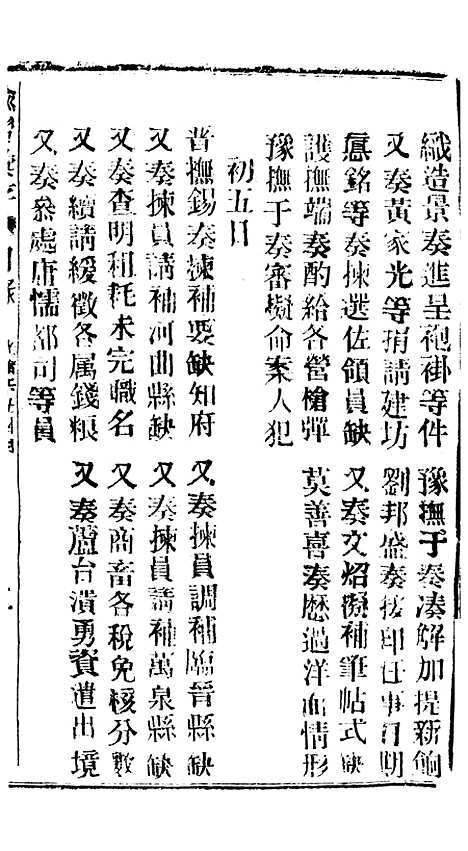 織造景奏進呈袍褂等件　豫撫于奏湊解加提新餉
又奏黃家光等捐請建坊　劉邦盛奏接印任事日期
意銘等奏揀選佐領員缺　又奏文炤擬補筆帖式缺
護撫端奏酌給各營槍彈　莫善喜奏歷過洋面情形
豫撫于奏審擬命案人犯
初五日
晋撫錫奏揀補要缺知府　又奏揀員調補臨晉縣缺
又奏揀員請補河曲縣缺　又奏揀員請補萬泉縣缺
又奏查明租耗未完職名　又奏商畜各稅免核分數
又奏續請緩徵各属錢粮　又奏蘆台潰勇資遣出境
又奏叅處庸懦都司等員
目錄